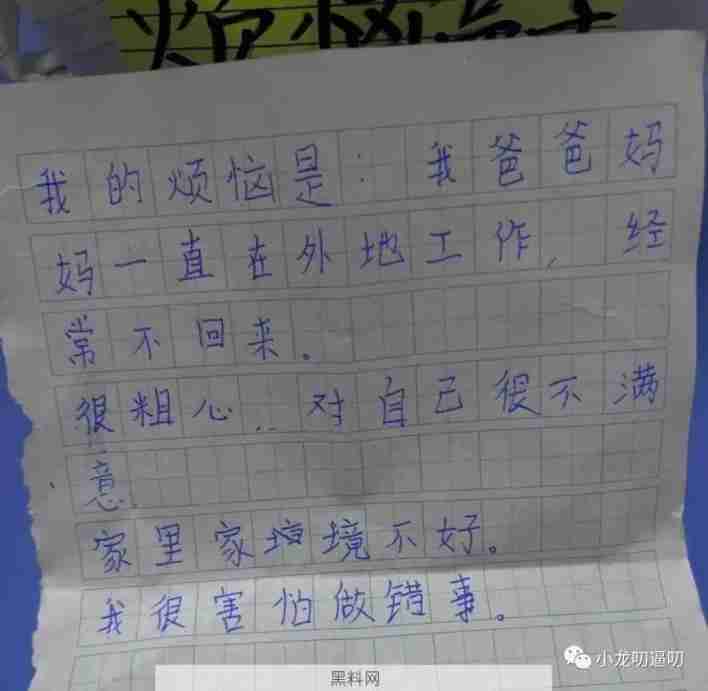 烦恼
我的烦恼是：我爸爸妈
妈一直在外地工作，经
常不回来。
很粗心..对自己很不满
意
家里家境境不好。
我很害怕做错事。
小龙叨逼叨
黑料网